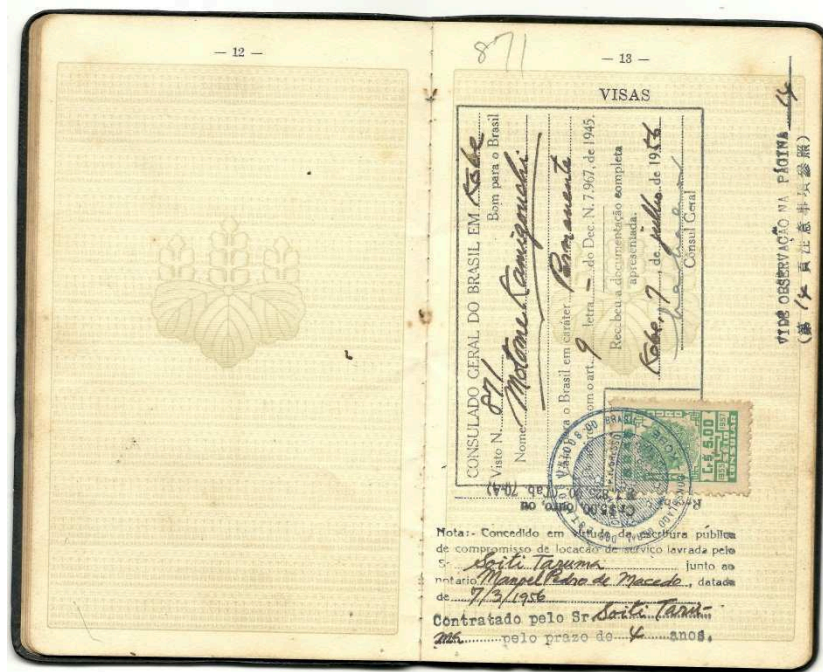 — 12 —
871
— 13 —
VISAS
CONSULADO GERAL DO BRASIL EM Kobe
Visto N. 871 Bom para o Brasil
Nome Motome Kamigouchi
o Brasil em caráter Permanente
com o art. 9 letra — do Dec. N. 7.967, de 1945.
Recebeu a documentação completa
apresentada.
Kobe, 7, de julho de 1956
Cônsul Geral
VIDE OBSERVAÇÃO NA PÁGINA 14
(第 14 頁注意事項参照)
Cr$ 5,00
CONSULAR
Cr$5,00, ouro, ou
(Tab. 70-A)
Nota:- Concedido em virtude da escritura pública
de compromisso de locação de serviço lavrada pelo
Sr. Soiti Taruma junto ao
notário Manoel Pedro de Macedo, datada
de 7/3/1956
Contratado pelo Sr. Soiti Taru-
ma pelo prazo de 4 anos.